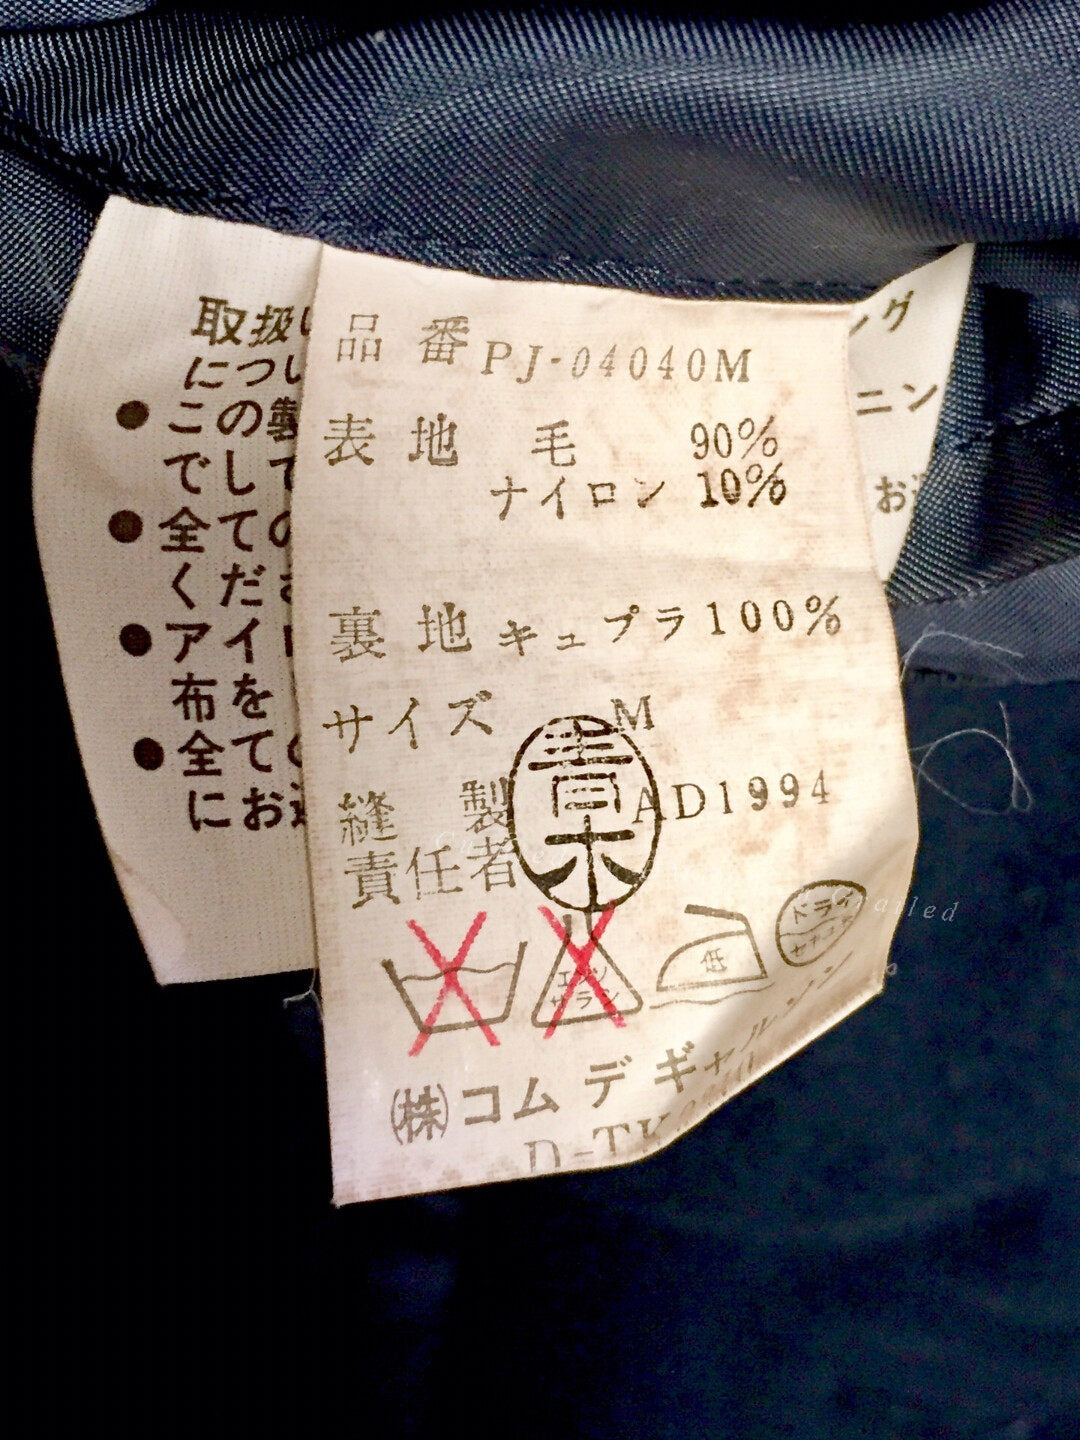 取扱い
につい
● この製
でして
● 全ての
くださ
● アイ
布を
● 全ての
にお
品番 PJ-04040M
表地 毛 90%
ナイロン 10%
裏地 キュプラ 100%
サイズ M
縫製 AD1994
責任者
青木
エンソ
サラシ
低
ドライ
セキユ系
(株)コム デ ギャルソン
D-TK
ング
ニン
お